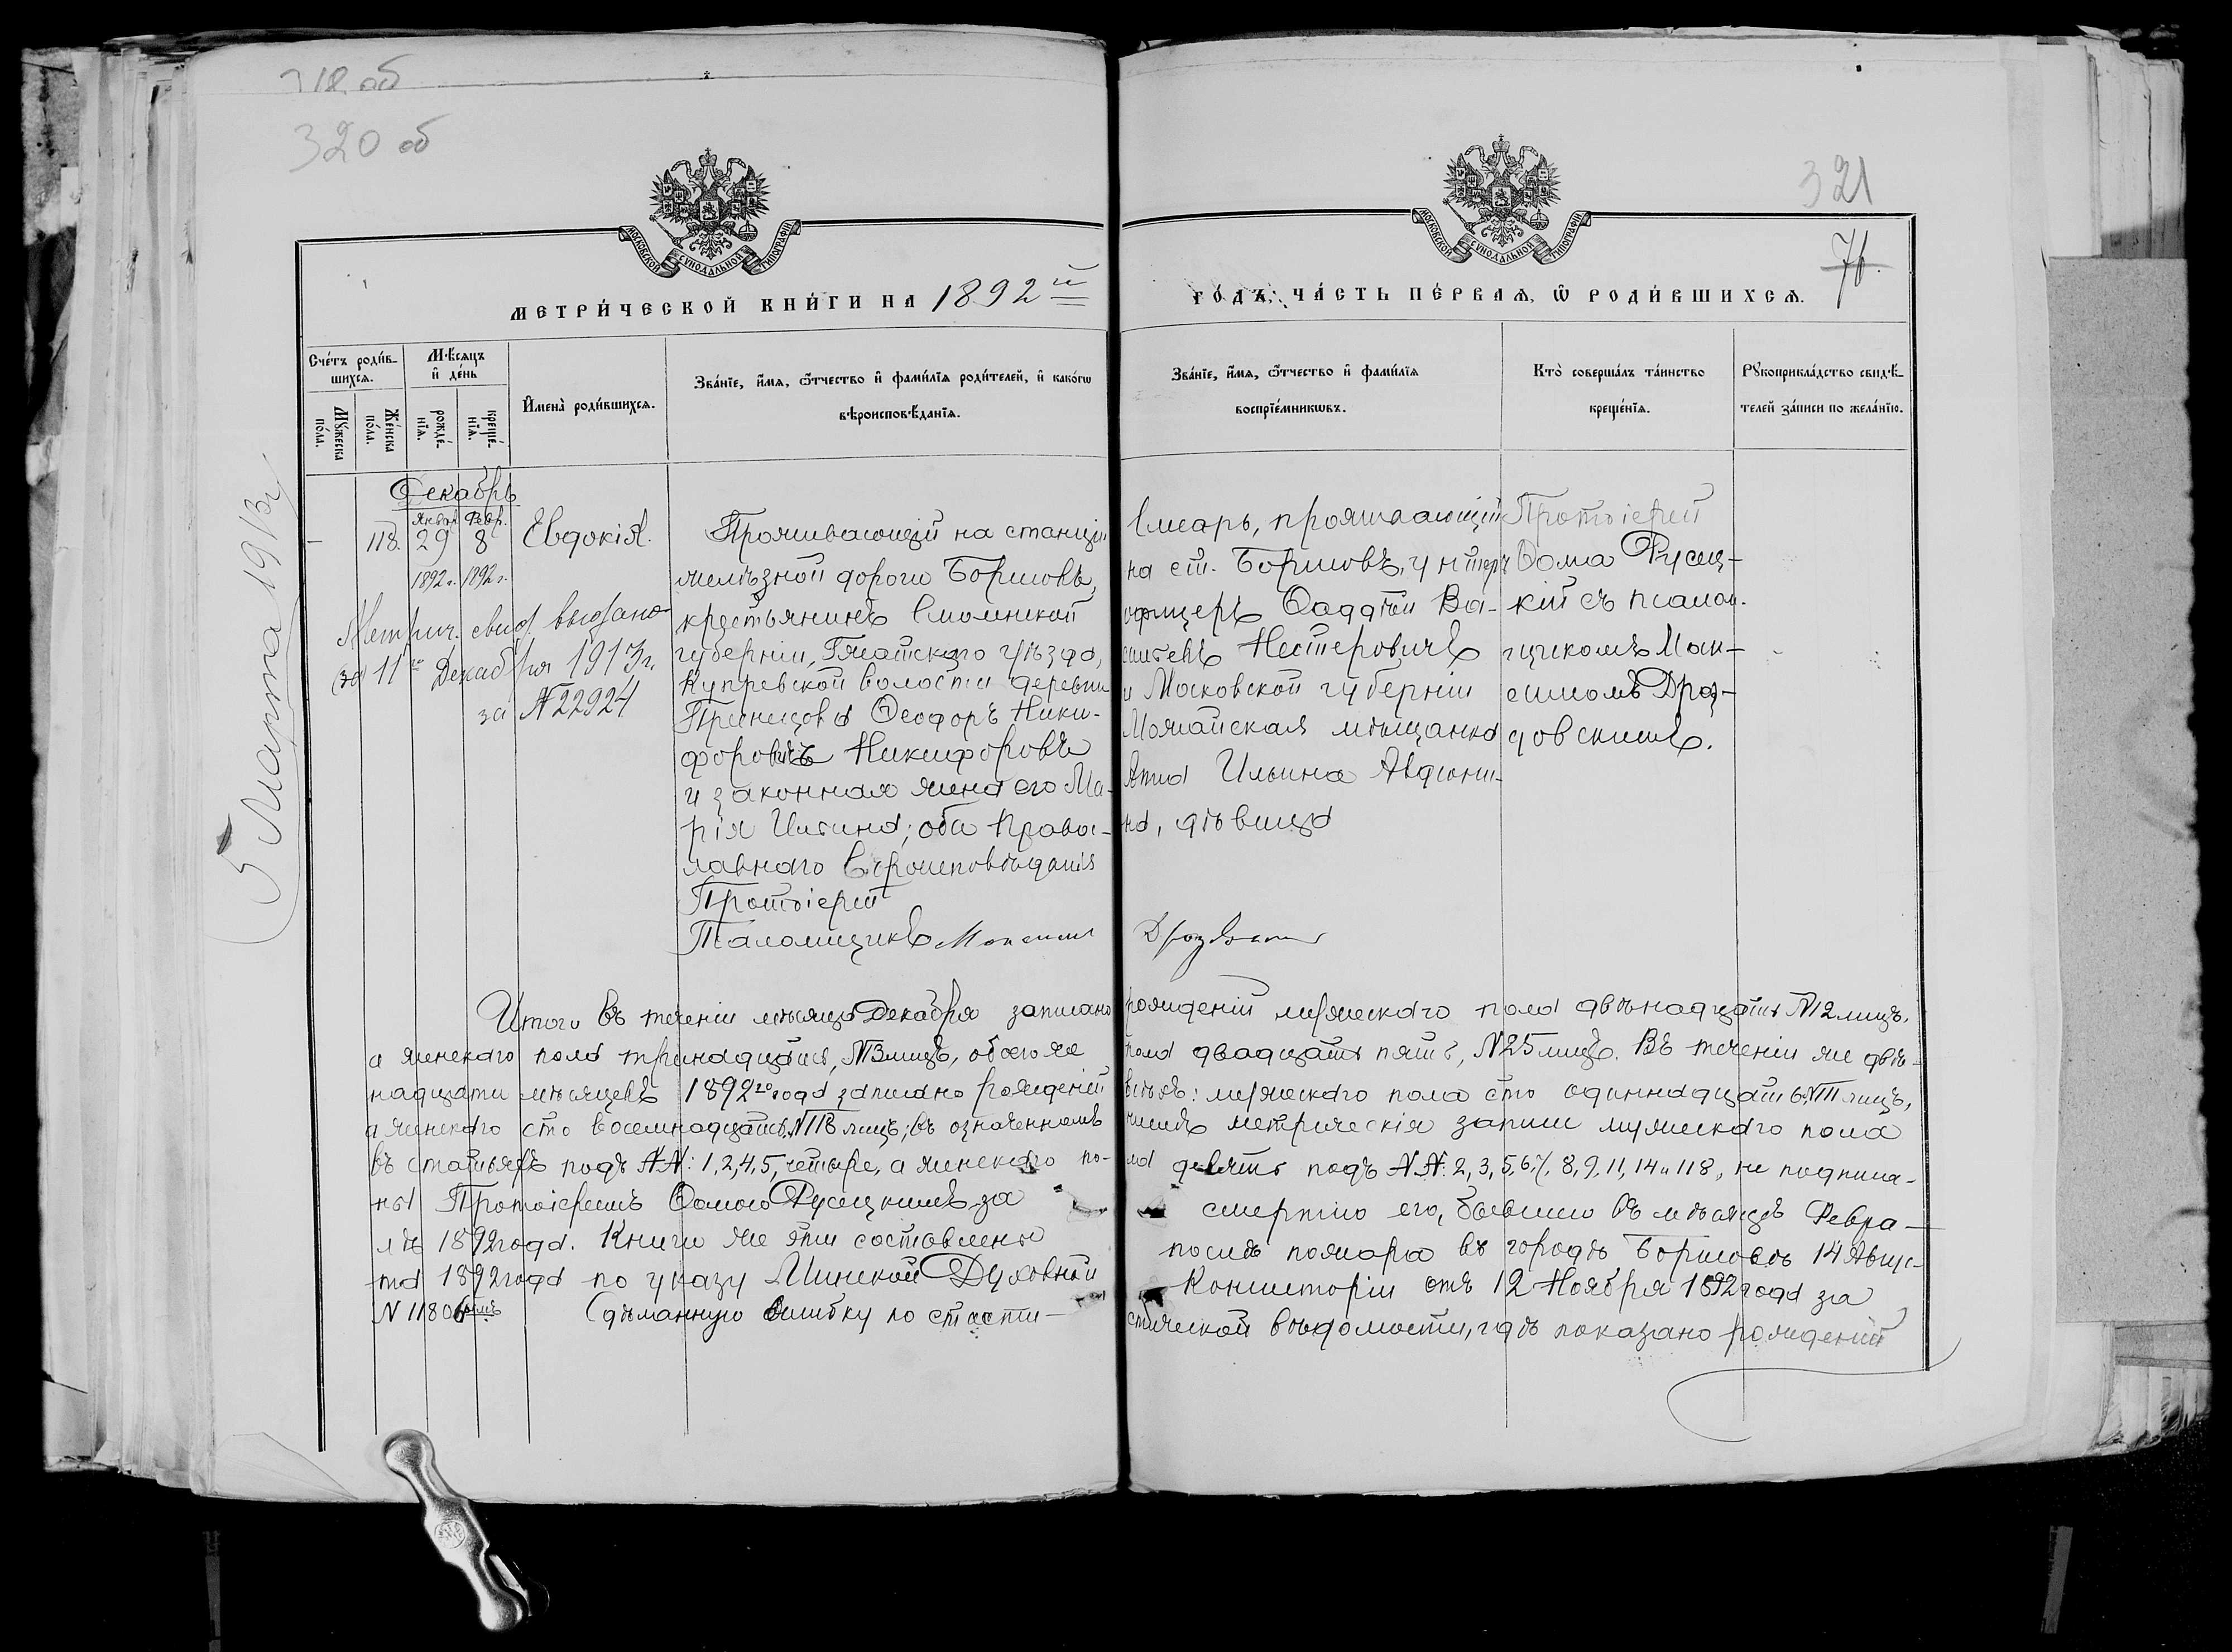 320 об
321
76.
МОСКОВСКОЙ СѴНОДАЛЬНОЙ ТИПОГРАФІИ
МОСКОВСКОЙ СѴНОДАЛЬНОЙ ТИПОГРАФІИ
МЕТРИ́ЧЕСКОЙ КНИ́ГИ НА 1892й
ГО́ДЪ, ЧА́СТЬ ПЕ́РВАѦ, Ѿ РОДИ́ВШИХСѦ.
Сче́тъ роди́в-
шихсѧ.
Мꙋ́жеска по́ла.
Же́нска по́ла.
Мѣ́сѧцъ и҆ де́нь
рожде́-
нїѧ.
креще́-
нїѧ.
И҆мена̀ роди́вшихсѧ.
Зва́нїе, и҆́мѧ, ѻ҆́тчество и҆ фами́лїѧ роди́телей, и҆ како́гѡ
вѣроисповѣ́данїѧ.
Зва́нїе, и҆́мѧ, ѻ҆́тчество и҆ фами́лїѧ
воспрїе́мникѡвъ.
Кто̀ соверша́лъ та́инство
креще́нїѧ.
Рꙋкоприкла́дство свидѣ́-
телей за́писи по жела́нїю.
5 Марта 1913г.
Декабрь
Январ. Февр.
118. 29 8
1892г. 1892г.
Евдокія.
Метрич. свид. выдано
11го Декабря 1913г.
за № 22924
Проживающій на станціи
желѣзной дороги Борисовъ,
крестьянинъ Смоленской
губерніи, Гжатскаго уѣзда,
волости деревни
Ѳеодоръ Ники-
форовичъ Никифоровъ
и законная жена его Ма-
рія Ильина; оба Право-
славнаго вѣроисповѣданія
Протоіерей
Псаломщикъ Максимъ
Дроздовскій
Слесарь, проживающій
на ст. Борисовъ, унтеръ
офицеръ Ѳаддей Ва-
сильевъ Нестеровичъ
и Московской губерніи
Можайская мѣщанка
Анна Ильина Авдюни-
на, дѣвица
Протоіерей
Ѳома Русец-
кій съ псалом-
щикомъ Мак-
симомъ Дроз-
довскимъ.
Итого въ теченіи мѣсяца Декабря записано рожденій мужескаго пола двѣнадцать №12 лицъ,
а женскаго пола тринадцать, №13 лицъ, обоего же пола двадцать пять, №25 лицъ. Въ теченіи же двѣ-
надцати мѣсяцевъ 1892го года записано рожденій всѣхъ: мужескаго пола сто одиннадцать №111 лицъ,
а женскаго сто восемнадцать, №118 лицъ; въ означенномъ числѣ метрическія записи мужескаго пола
въ статьяхъ подъ №№: 1,2,4,5, четыре, а женскаго по-ла девять подъ №№: 2, 3, 5, 6, 7, 8, 9, 11, 14 и 118, не подписа-
ны Протоіереемъ Ѳомою Русецкимъ за смертію его, бывшею въ мѣсяцѣ Февра-
лѣ 1892 года. Книги же эти составлены послѣ пожара въ городѣ Борисовѣ 14 Авгус-
та 1892 года по указу Минской Духовной Консисторіи отъ 12 Ноября 1892 года за
№ 11806 Сдѣланную ошибку по статистической вѣдомости, гдѣ показано рожденій